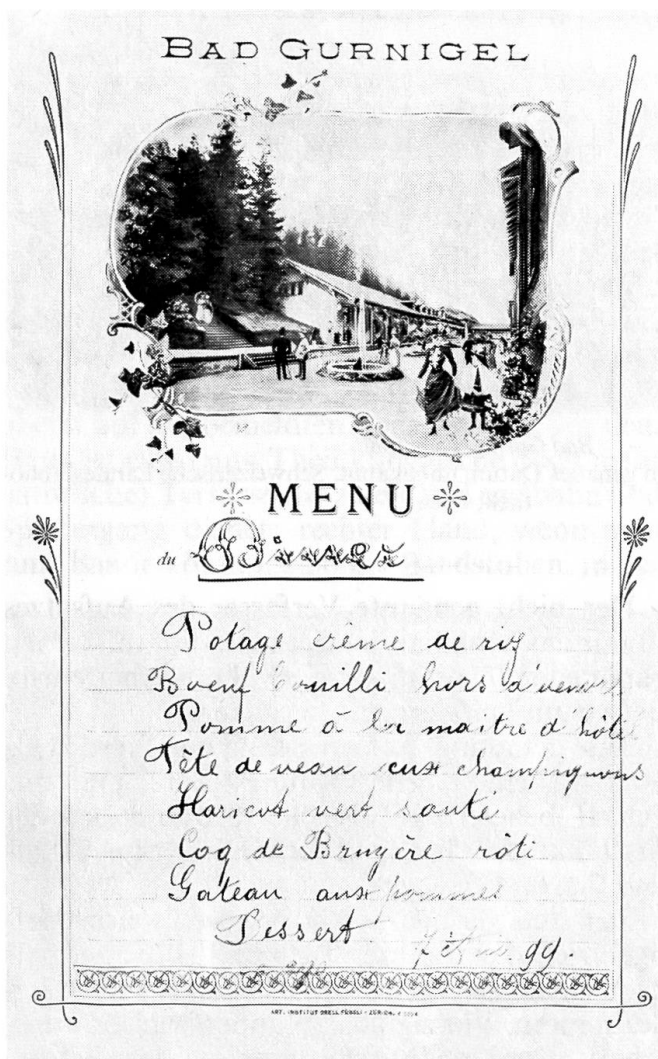 BAD GURNIGEL
MENU
du Dîner
Potage crème de riz
Boeuf bouilli hors d'œuvre
Pomme à la maitre d'hôtel
Tête de veau aux champignons
Haricot vert sauté
Coq de Bruyère rôti
Gateau aux pommes
Dessert
99.
ART. INSTITUT ORELL FÜSSLI - ZÜRICH.